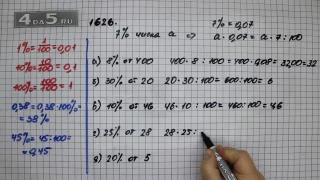 4DA5.RU
1626.
7% = 0,07
7% числа a => a · 0,07 = a · 7 : 100
1% = 1/100 = 0,01
100% = 100/100 = 1
0,38 = 0,38 · 100% =
= 38%
45% = 45 : 100 =
= 0,45
а) 8% от 400 400 · 8 : 100 = 400 · 0,08 = 3200 = 32
б) 30% от 20 20 · 30 : 100 = 600 : 100 = 6
в) 10% от 46 46 · 10 : 100 = 460 : 100 = 4,6
г) 25% от 28 28 · 25 :
д) 20% от 5